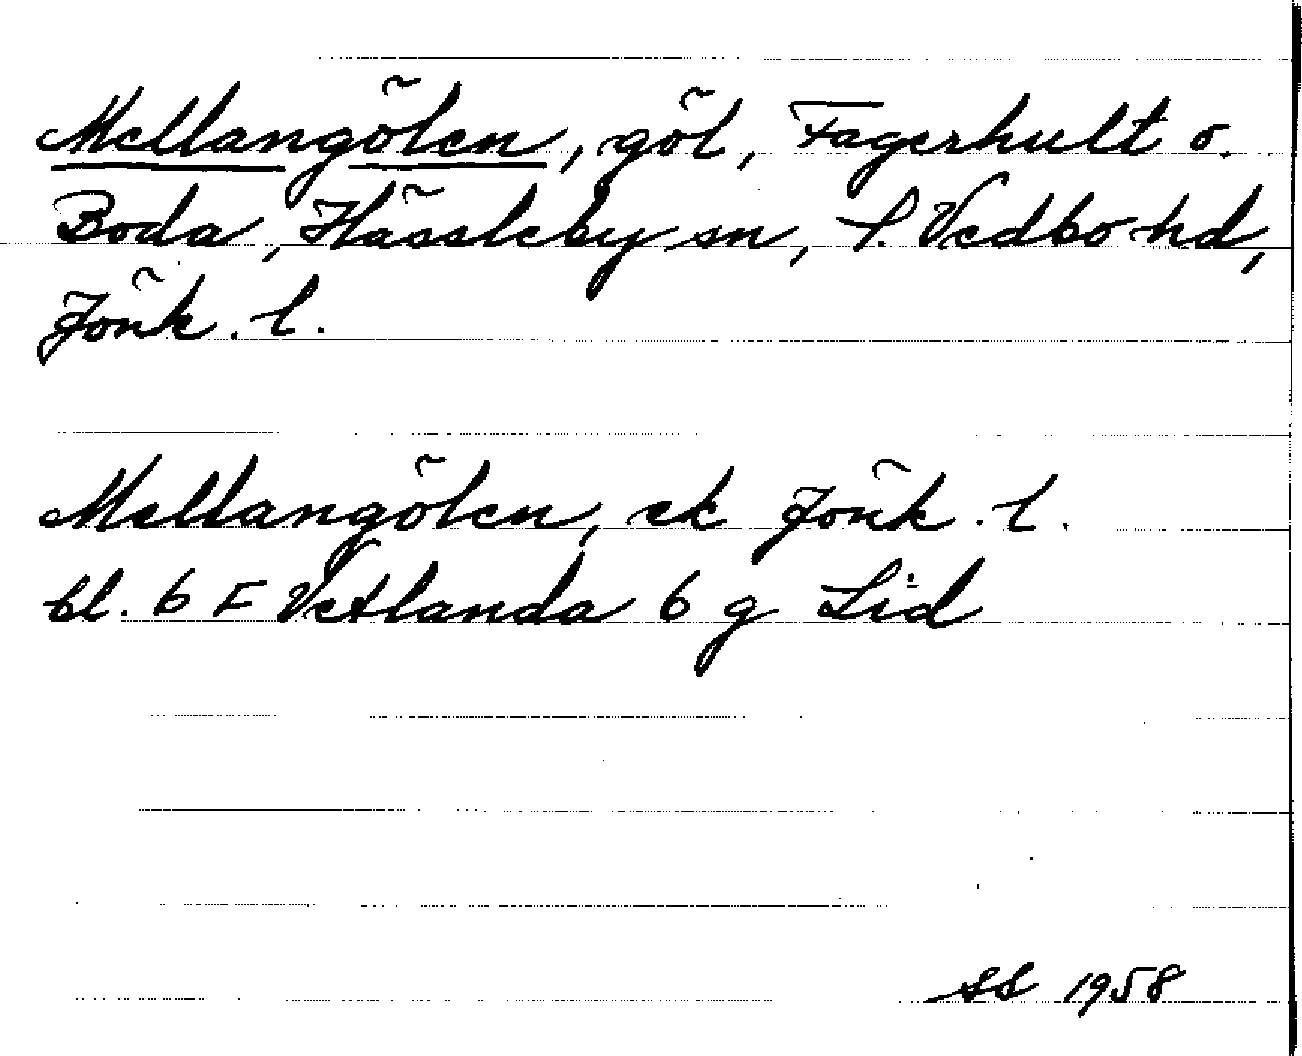 Mellangölen, göl, Fagerhult o.
Boda, Hässleby sn, S. Vedbo hd,
Jönk. l.
Mellangölen, ek Jönk. l.
bl. 6 F Vetlanda 6 g Lid
SS 1958